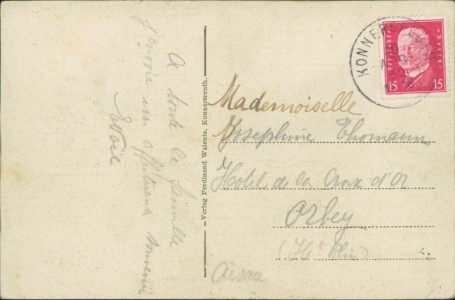 A toute la famille
j'envoie un affectueux souvenir
Verlag Ferdinand Walents, Konnersreuth.
KONNERS
15 15
Mademoiselle
Josephine Thomann
Hotel de la Croix d'Or
Orbey
(Ht Rhin)